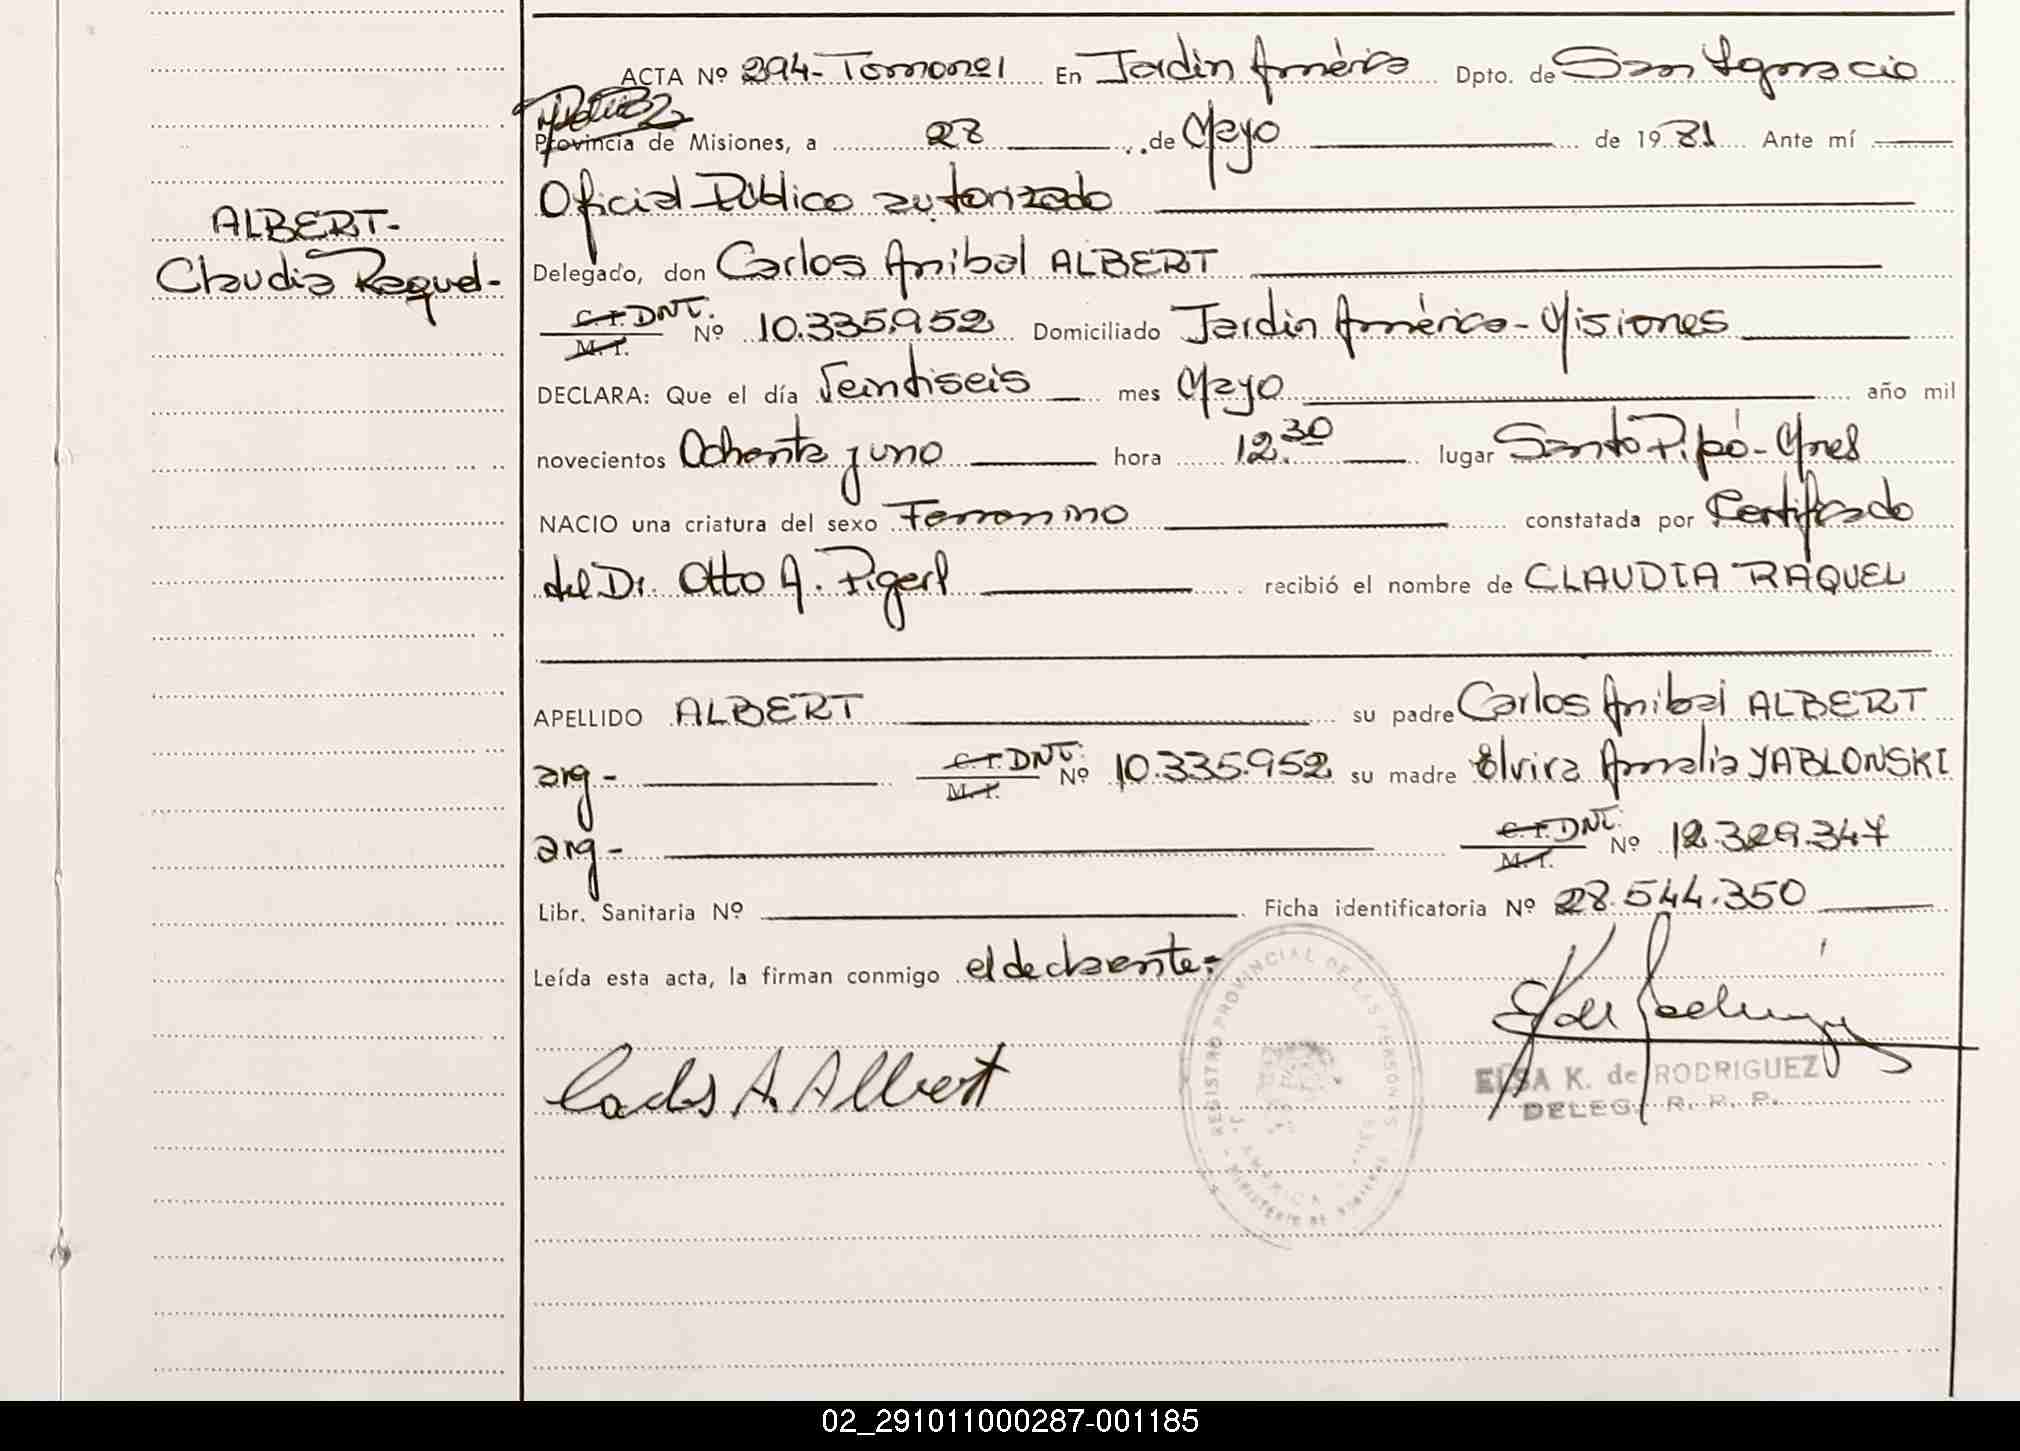 ACTA Nº 294- Tomo nº1 En Jardín América Dpto. de San Ignacio
República
Provincia de Misiones, a 28 de Mayo de 1981 Ante mí
Oficial Público autorizado
ALBERT-
Claudia Raquel-
Delegado, don Carlos Anibal ALBERT
C.I. DNI. M.I. Nº 10.335.952 Domiciliado Jardín América - Misiones
DECLARA: Que el día Veintiseis mes Mayo año mil
novecientos Ochenta y uno hora 12.30 lugar Santo Pipó - Mnes
NACIO una criatura del sexo Femenino constatada por Certificado
del Dr. Otto A. Pigerl recibió el nombre de CLAUDIA RAQUEL
APELLIDO ALBERT su padre Carlos Anibal ALBERT
arg - C.I. DNI. M.I. Nº 10.335.952 su madre Elvira Amalia YABLONSKI
arg - C.I. DNI. M.I. Nº 12.329.347
Libr. Sanitaria Nº Ficha identificatoria Nº 28.544.350
Leída esta acta, la firman conmigo el declarante:
Carlos A. Albert
ELSA K. de RODRIGUEZ
DELEG. R. P. P.
REGISTRO PROVINCIAL DE LAS PERSONAS
02_291011000287-001185